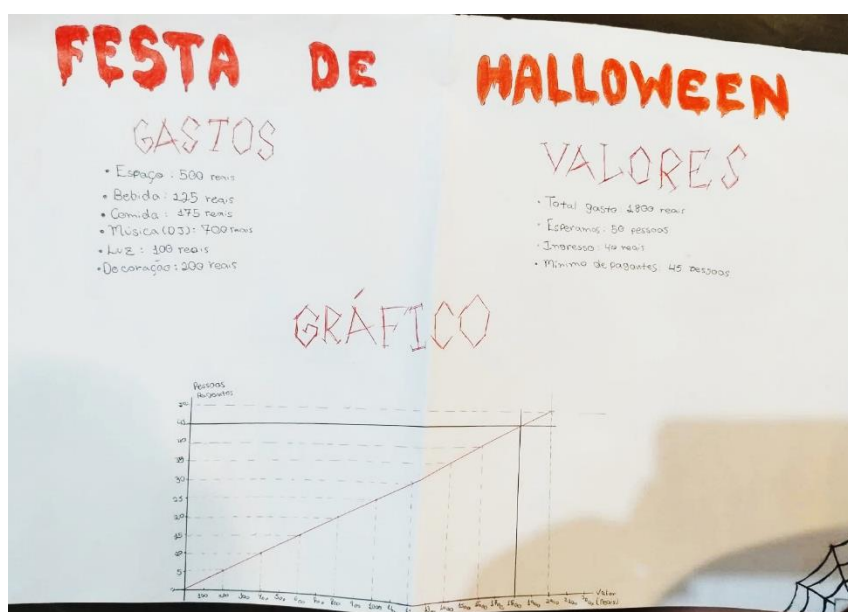 FESTA DE HALLOWEEN
GASTOS
• Espaço: 500 reais
• Bebida: 125 reais
• Comida: 175 reais
• Música (DJ): 700 reais
• Luz: 100 reais
• Decoração: 200 reais
VALORES
• Total gasto: 1800 reais
• Esperamos: 50 pessoas
• Ingresso: 40 reais
• Mínimo de pagantes: 45 pessoas
GRÁFICO
Pessoas
Pagantes
50
45
40
35
30
25
20
15
10
5
0
Valor
(reais)